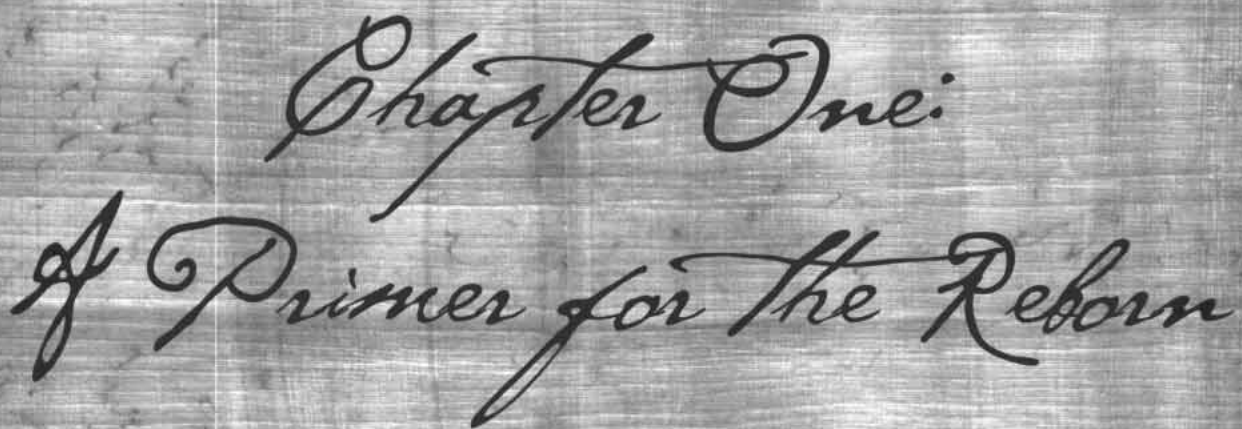 Chapter One:
A Primer for the Reborn